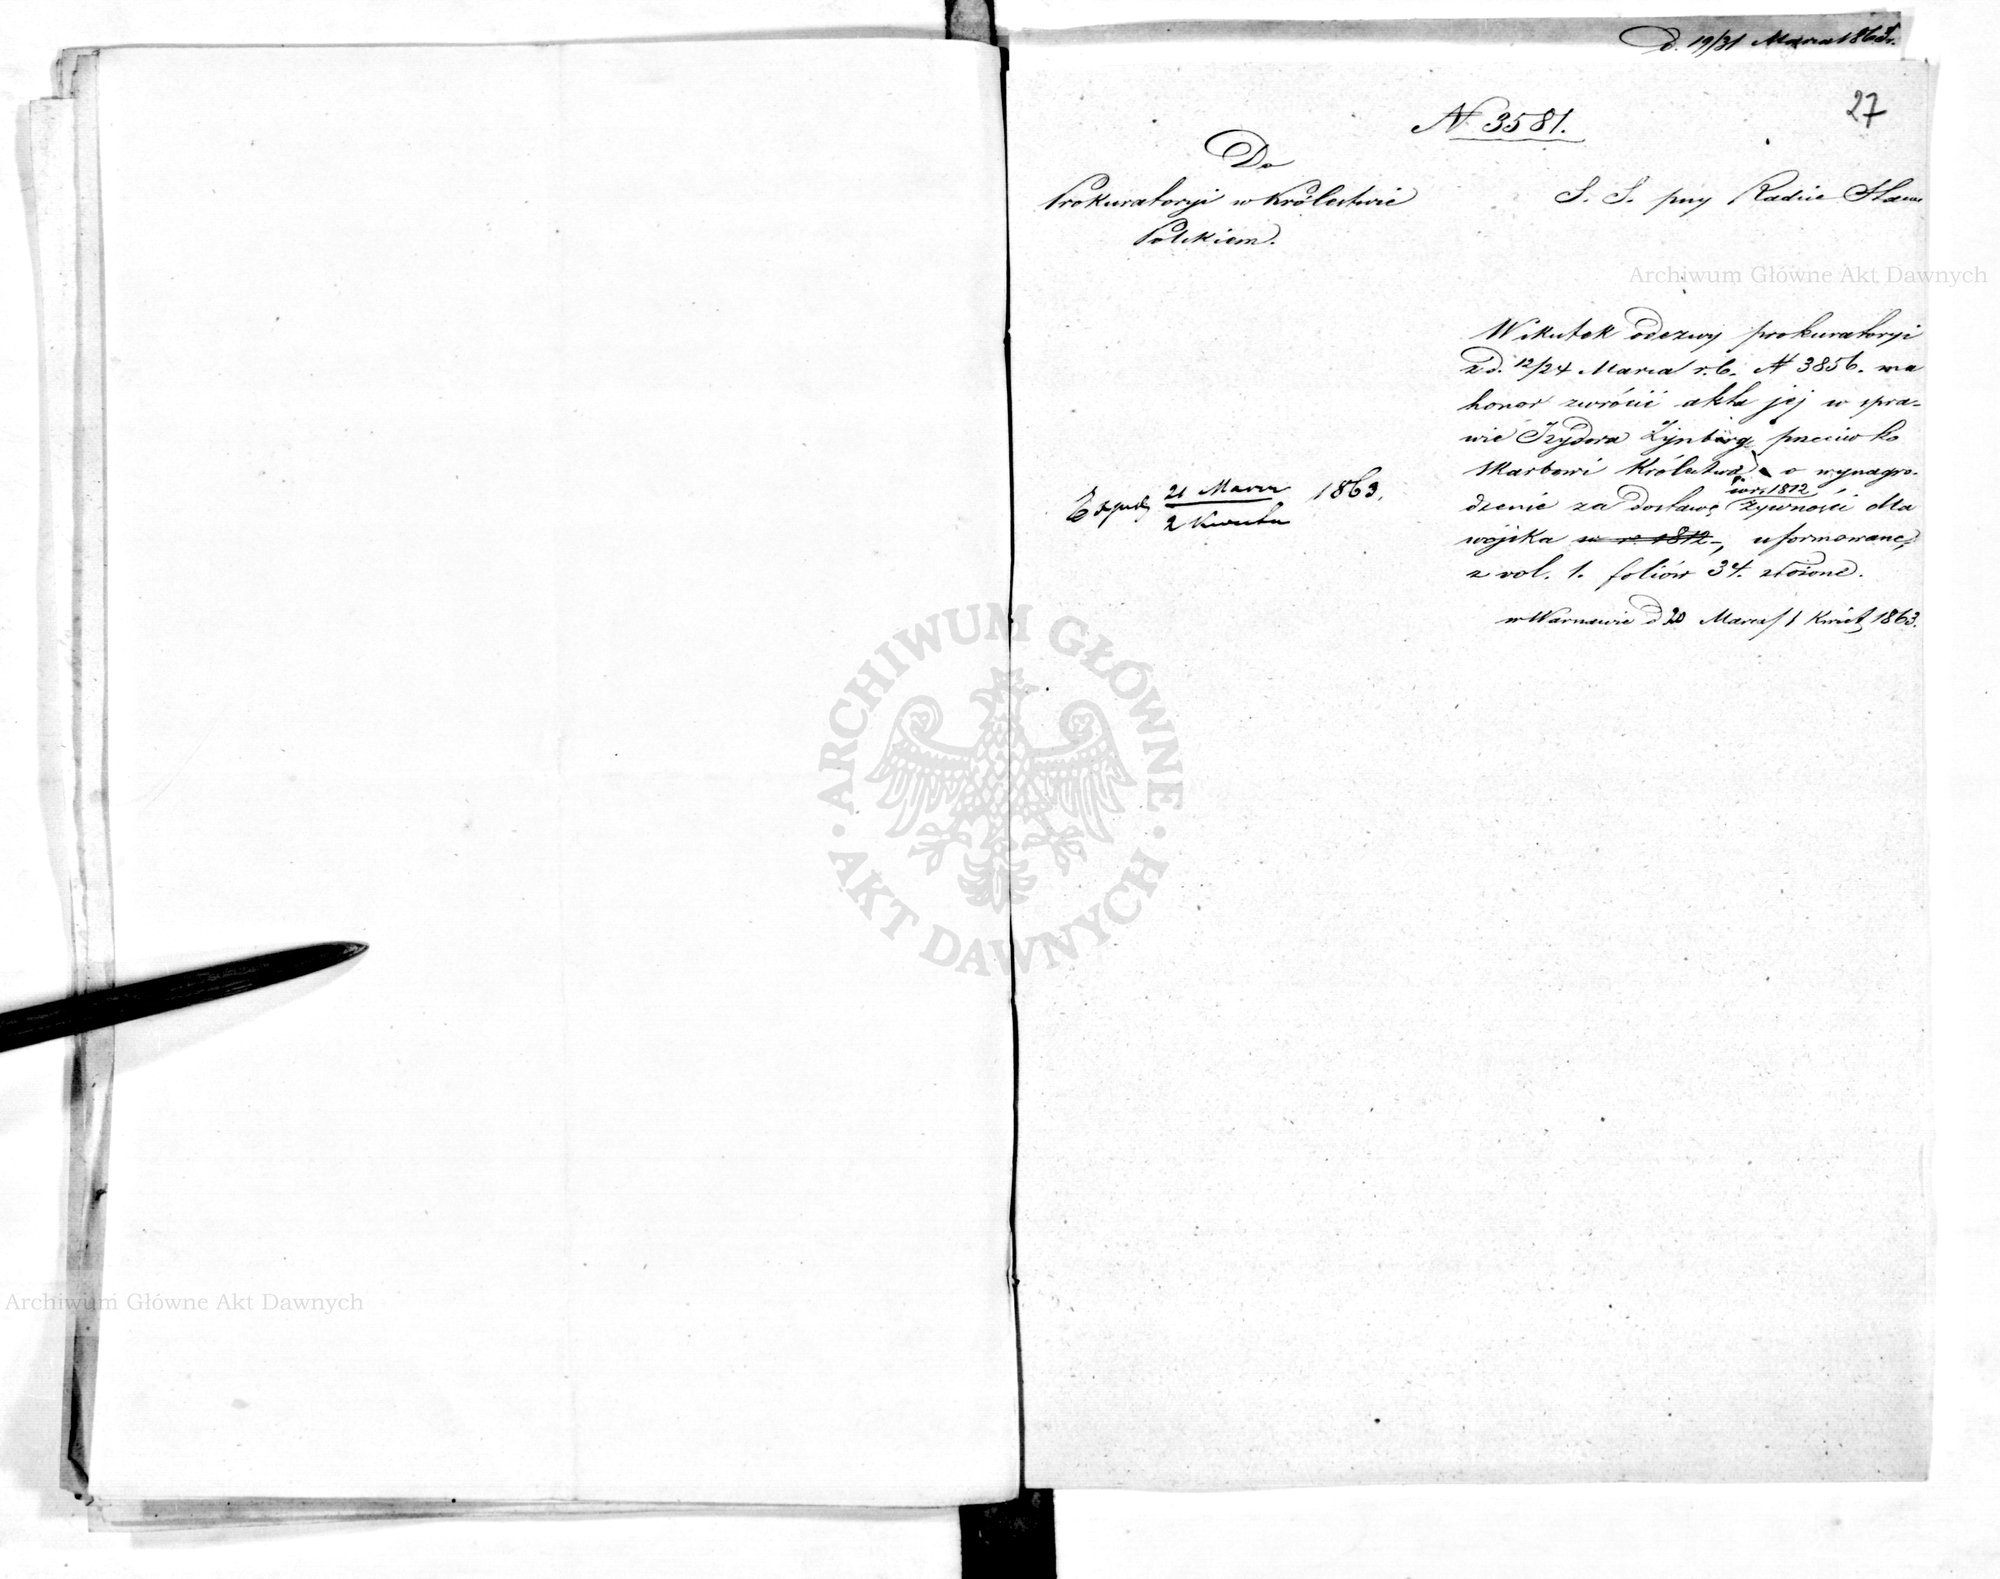 D. 19/31 Marca 1863 r.
27
N 3581.
Do
Prokuratoryi w Królestwie
Polskiem.
S. S. przy Radzie Stanu
Archiwum Główne Akt Dawnych
W skutek odezwy prokuratoryi
z d. 12/24 Marca r. b. N 3856. ma
honor zwrócić akta jej w spra-
wie Izydora Zynberg przeciwko
skarbowi Królestwa o wynagro-
w r. 1812
dzenie za dostawę żywności dla
wojska w r. 1812 -, uformowane,
z vol. 1. foliów 34. złożone.
w Warszawie d 20 Marca / 1 Kwiet 1863.
21 Marca
2 Kwietn
1863.
ARCHIWUM GŁÓWNE
· AKT DAWNYCH ·
Archiwum Główne Akt Dawnych